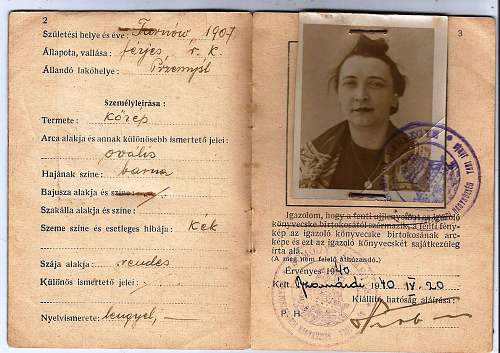 2
Születési helye és éve: Tarnów, 1907
Állapota, vallása: férjes r. k.
Állandó lakóhelye: Przemyśl
Személyleírása:
Termete: közép
Arca alakja és annak különösebb ismertető jelei:
ovális
Hajának színe: barna
Bajusza alakja és színe:
Szakálla alakja és színe:
Szeme színe és esetleges hibája: kék
Szája alakja: rendes
Különös ismertető jelei:
Nyelvismerete: lengyel,
3
Igazolom, hogy a fenti ujjlenyomat az igazoló
könyvecske birtokosától származik, a fenti fény-
kép az igazoló könyvecske birtokosának arc-
képe és ezt az igazoló könyvecskét sajátkezüleg
írta alá.
(A meg nem felelő áthúzandó.)
Érvényes 1940
Kelt 1940 IV. 20
Kiállító hatóság aláírása:
P. H.